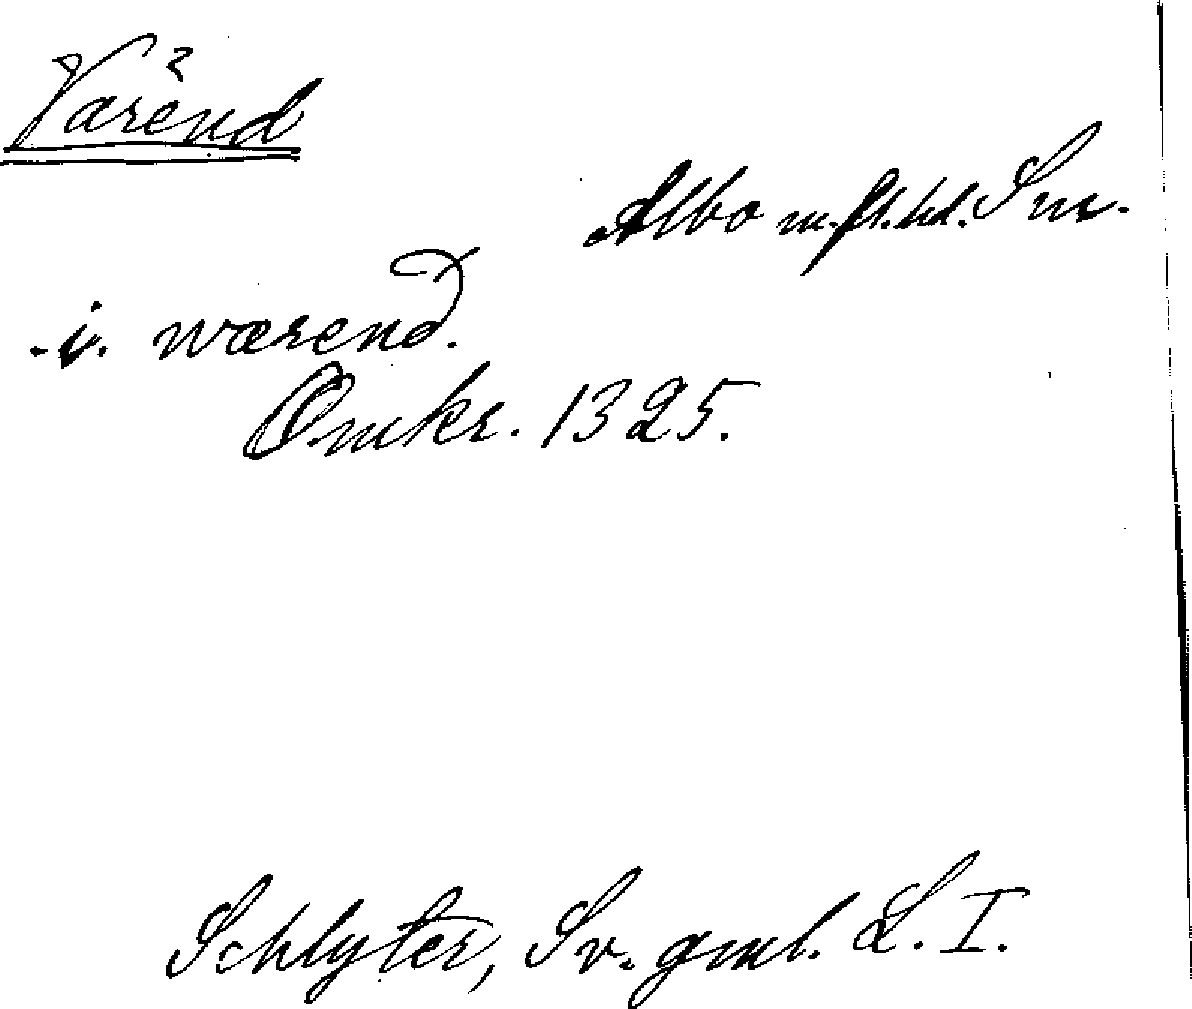 Värend
Albo m. fl. hd. Sm.
.i. wærend.
Omkr. 1325.
Schlyter, Sv. gml. L. I.